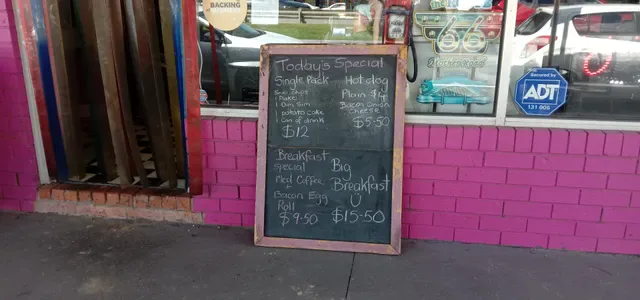 BACKING
Today's Special
Single Pack
1 Dim Sim
1 potato cake
1 Can of drink
$12
Hotdog
Plain $4
Bacon Onion
Cheese
$5-50
Breakfast
Special
Med Coffee
+
Bacon Egg
Roll
$9.50
Big
Breakfast
$15-50
66
Secured by
ADT
131 005